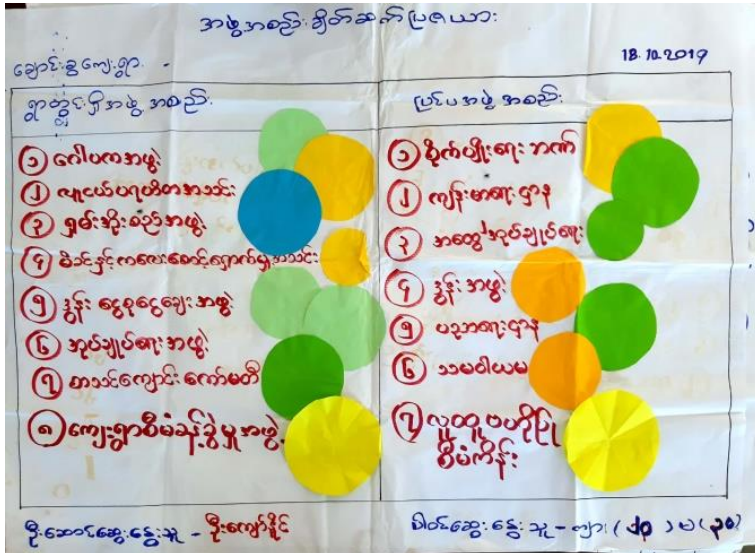 အဖွဲ့အစည်းချိတ်ဆက်ပြဇယား
18.10.2019
ချောင်းခွကျေးရွာ -
ရွာတွင်းရှိအဖွဲ့အစည်း
ပြင်ပအဖွဲ့အစည်း
၁ ဂေါပကအဖွဲ့
၂ လူငယ်ပရဟိတအသင်း
၃ ရှမ်းအိုးစည်အဖွဲ့
၄ မိခင်နှင့်ကလေးစောင့်ရှောက်မှုအသင်း
၅ ဒွန်း ငွေစုငွေချေးအဖွဲ့
၆ အုပ်ချုပ်ရေးအဖွဲ့
၇ စာသင်ကျောင်းကော်မတီ
၈ ကျေးရွာစီမံခန့်ခွဲမှုအဖွဲ့
၁ စိုက်ပျိုးရေးဘဏ်
၂ ကျန်းမာရေးဌာန
၃ အထွေအုပ်ချုပ်ရေး
၄ ဒွန်းအဖွဲ့
၅ ပညာရေးဌာန
၆ သမဝါယမ
၇ လူထုဗဟိုပြု
စီမံကိန်း
ဦးဆောင်ဆွေးနွေးသူ - ဦးကျော်နိုင်
ပါဝင်ဆွေးနွေးသူ - ကျား (၂၃) မ (၃၀)